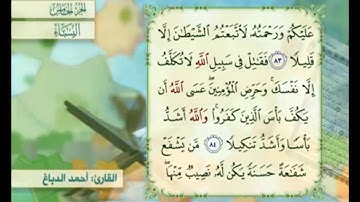 الجزء الخامس
النساء
عَلَيْكُمْ وَرَحْمَتُهُ لَاتَّبَعْتُمُ الشَّيْطَٰنَ إِلَّا
قَلِيلًا ٨٣ فَقَٰتِلْ فِي سَبِيلِ اللَّهِ لَا تُكَلَّفُ
إِلَّا نَفْسَكَ ۚ وَحَرِّضِ الْمُؤْمِنِينَ ۖ عَسَى اللَّهُ أَن
يَكُفَّ بَأْسَ الَّذِينَ كَفَرُوا ۚ وَاللَّهُ أَشَدُّ
بَأْسًا وَأَشَدُّ تَنكِيلًا ٨٤ مَّن يَشْفَعْ
شَفَٰعَةً حَسَنَةً يَكُن لَّهُ نَصِيبٌ مِّنْهَا ۖ
القارئ: أحمد الدباغ